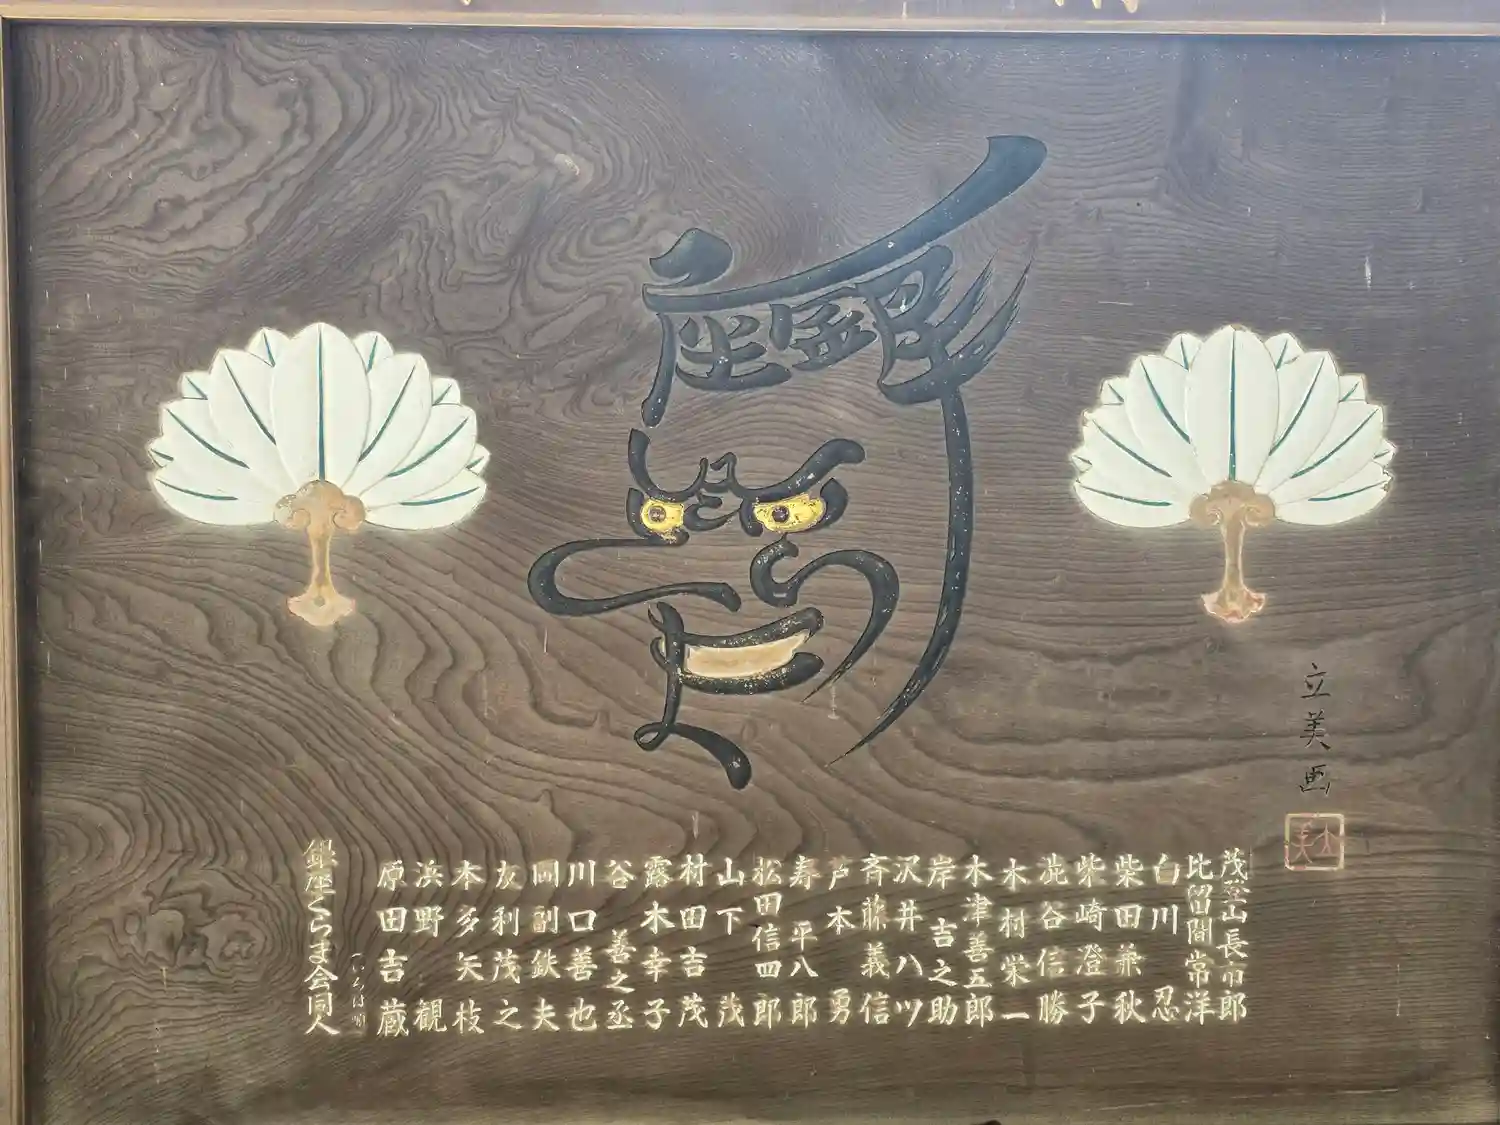 銀座
くらま
立美画
茂登山長市郎
比留間常洋
白川忍
柴田兼秋
柴崎澄子
渋谷信勝
木村栄一
木津善五郎
岸吉之助
沢井八ツ
斉藤義信
芦本勇
寿平八郎
松田信四郎
山下茂
村田吉茂
露木幸子
谷善之丞
川口善也
岡副鉄夫
友利茂之
本多矢枝
浜野観
原田吉蔵
(いろは順)
銀座くらま会同人